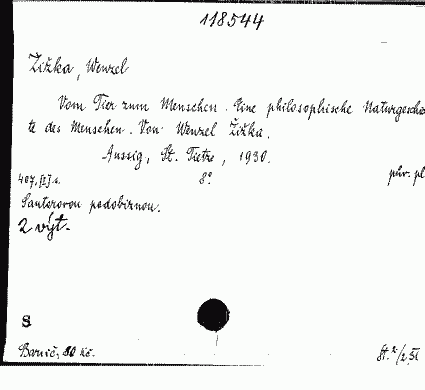 118544
Žižka, Wenzel
Vom Tier zum Menschen. Eine philosophische Naturgeschich
te des Menschen. Von Wenzel Žižka.
Aussig, St. Tietze, 1930.
407, [I] s. 8° phv. pl
S autorovou podobiznou.
2 výt.
S
Barvič, 80 Kč.